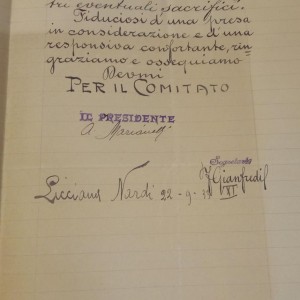 tri eventuali sacrifici.
Fiduciosi d'una presa
in considerazione e d'una
responsiva confortante, rin
graziamo e ossequiamo
Devmi
PER IL COMITATO
IL PRESIDENTE
Segretario
Licciana Nardi 22-9-
XI